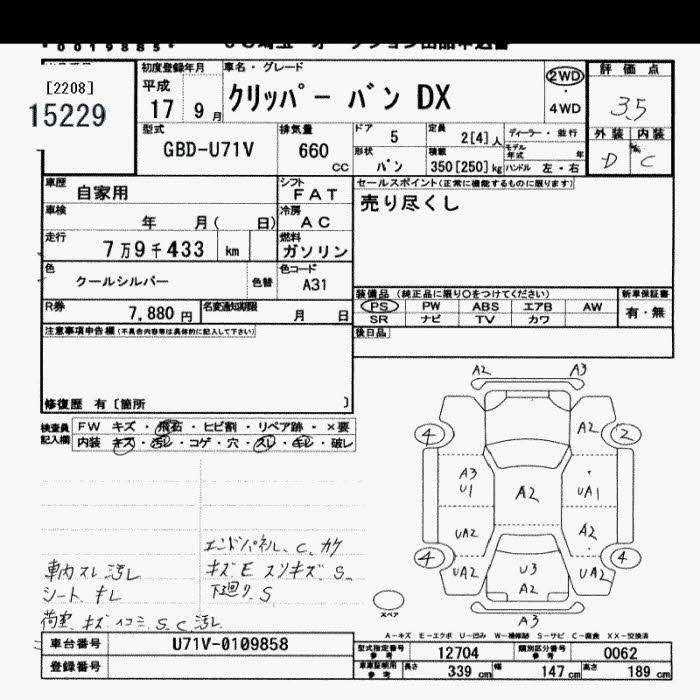 *0019885*
[2208]
15229
初度登録年月
平成
17 9月
車名・グレード
クリッパー バン DX
2WD
・
4WD
評価点
3.5
外装 内装
D C
型式
GBD-U71V
排気量
660 CC
ドア 5
定員 2[4]人
ディーラー・並行
形状 バン
積載 350[250]kg
モデル年式 年
ハンドル 左・右
車歴
自家用
シフト
FAT
車検
年 月( 日)
冷房
AC
走行
7万9千433 km
燃料
ガソリン
色
クールシルバー
色替
色コード
A31
R券
7,880 円
名変通知期限
月 日
セールスポイント(正常に機能するものに限ります)
売り尽くし
装備品 (純正品に限り○をつけてください)
PS PW ABS エアB AW
SR ナビ TV カワ
新車保証書
有・無
後日品
注意事項申告欄(不具合内容等は具体的に記入して下さい)
修復歴 有〔箇所 〕
検査員記入欄
FW キズ・飛石・ヒビ割・リペア跡・×要
内装 キズ・汚レ・コゲ・穴・スレ・キレ・破レ
車内スレ汚レ
シート、キレ
荷室、キズ、ヘコミ、S、C、汚レ
エンドパネル、C、カケ
キズ、E、スリキズ、S、
下廻り、S
A2 A3
4 A2 2
A3 U1 A2 UA1
UA2 A2
4 UA2 U3 A2 UA2 4
A3
スペア
A-キズ E-エクボ U-凹み W-補修跡 S-サビ C-腐食 XX-交換済
車台番号 U71V-0109858
登録番号
型式指定番号 参考 12704
類別区分番号 参考 0062
車庫証明用 参考 長さ 339 cm 幅 147 cm 高さ 189 cm